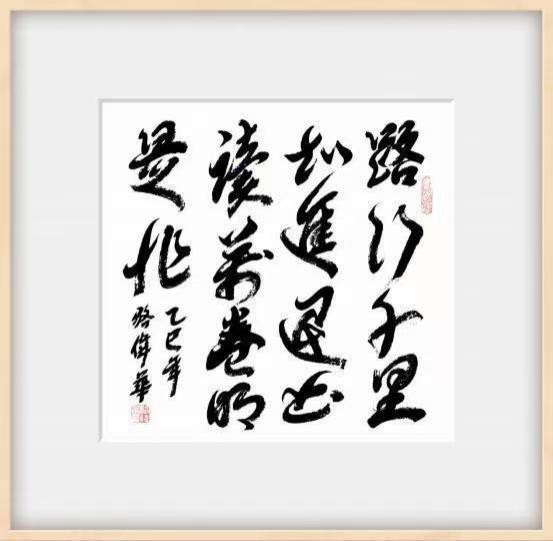 路行千里
知進退书
讀萬卷明
是非
乙巳年
偉華